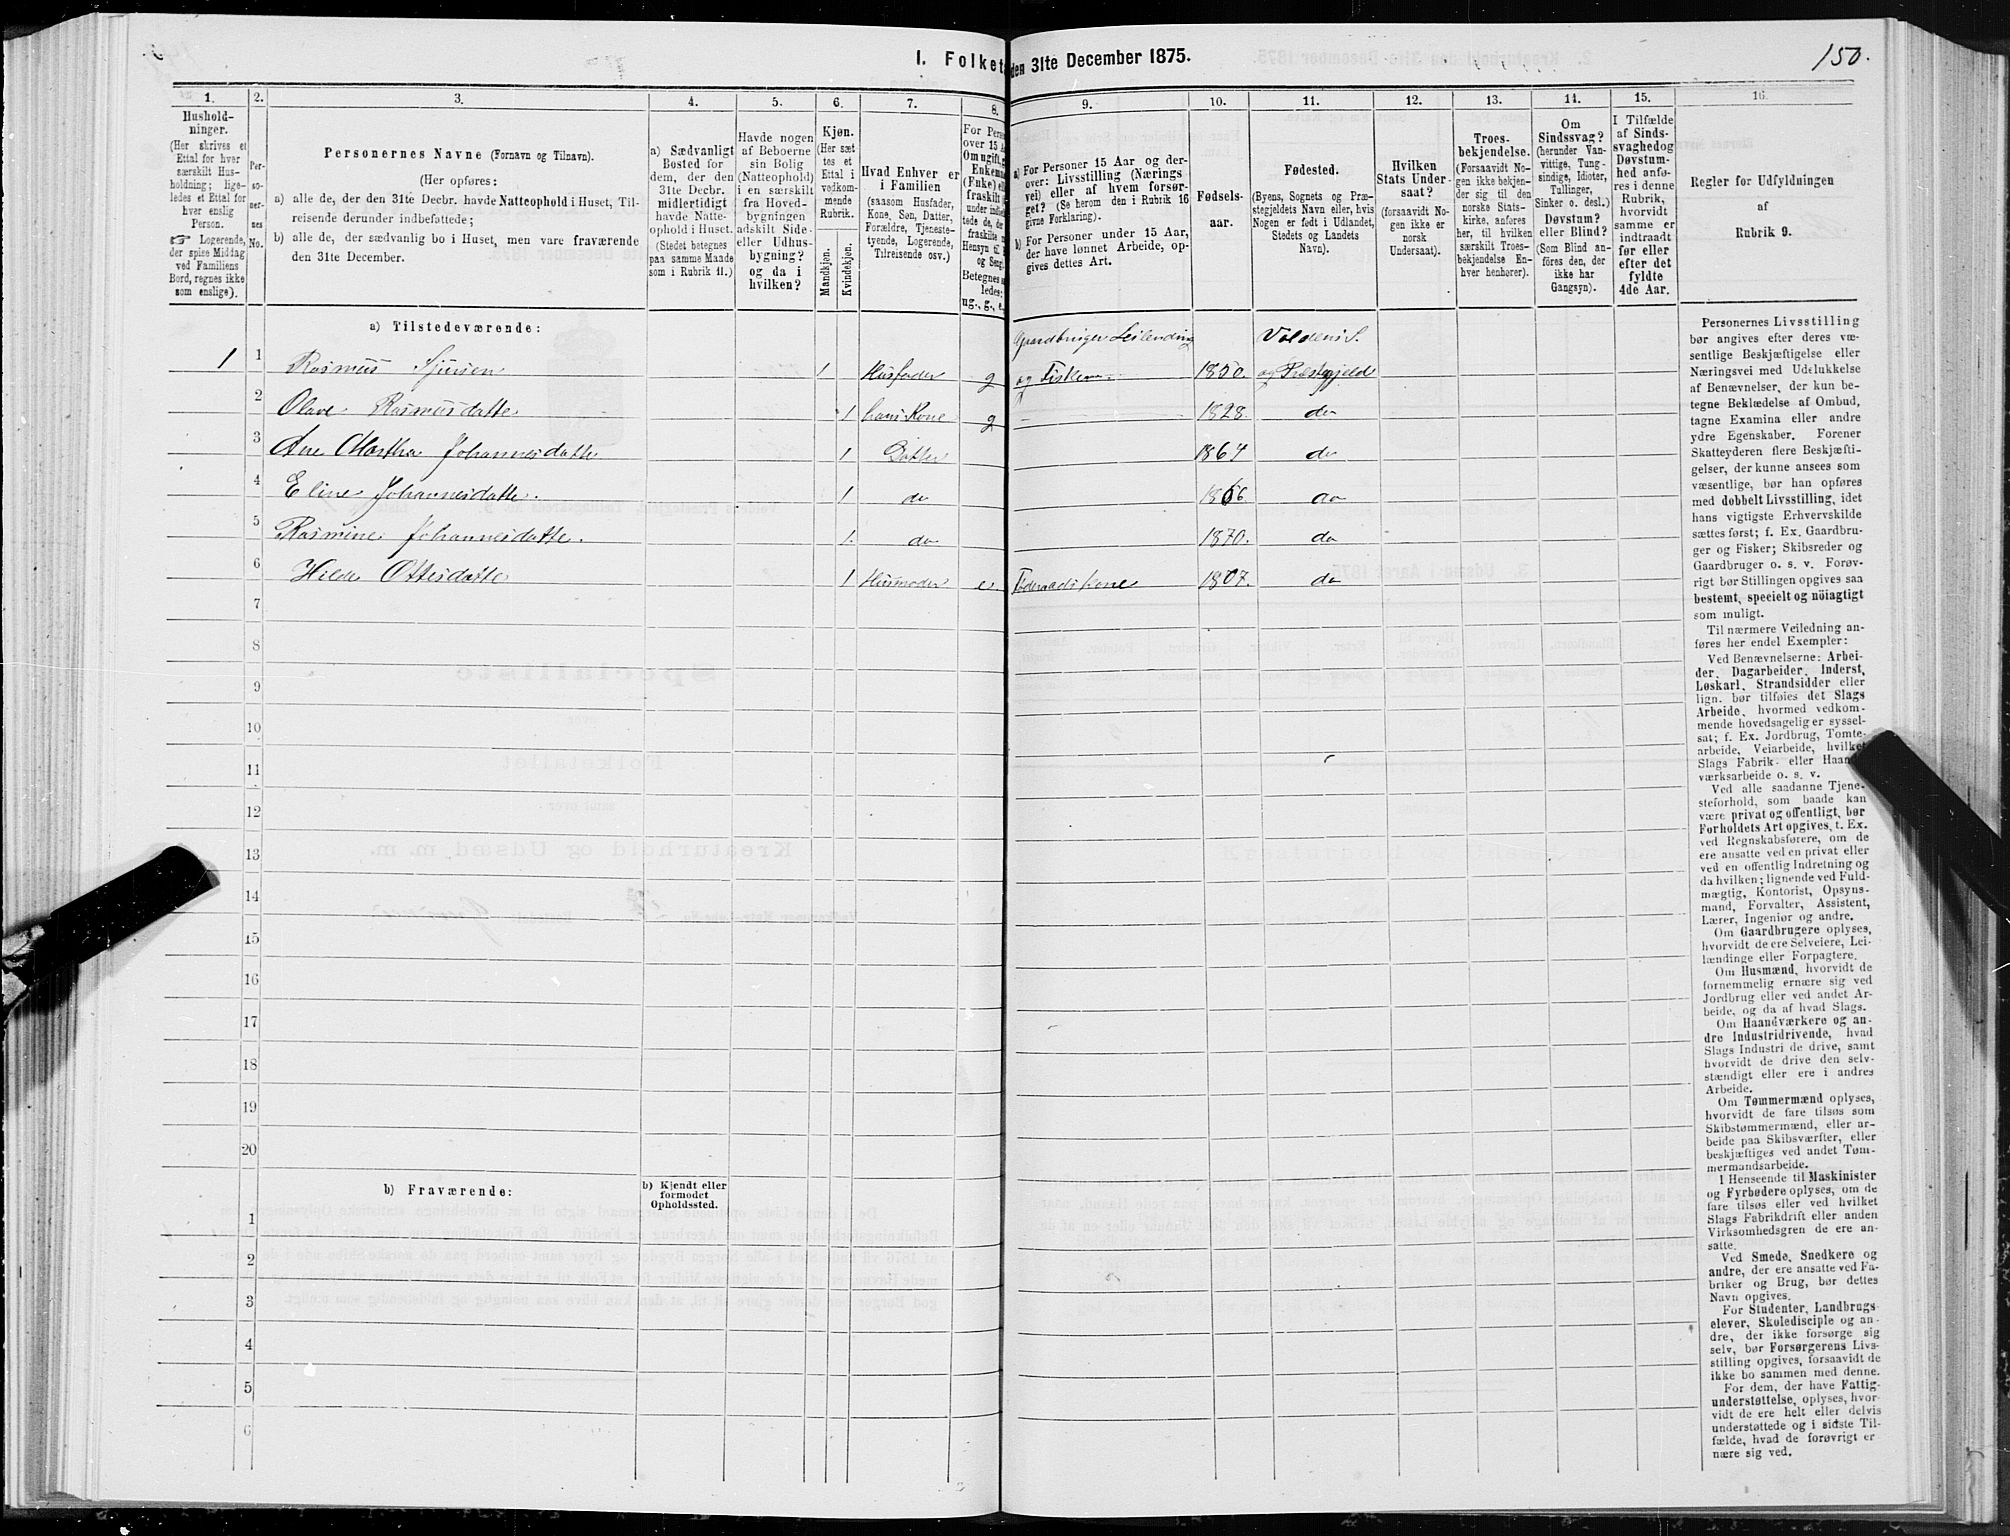 150.
I. Folket
den 31te December 1875.
1. 2. 3. 4. 5. 6. 7. 8. 9. 10. 11. 12. 13. 14. 15. 16.
Hushold-
ninger.
(Her skrives et
Ettal for hver
særskilt Hus-
holdning; lige-
ledes et Ettal for
hver enslig
Person.
☞ Logerende,
der spise Middag
ved Familiens
Bord, regnes ikke
som enslige).
Per-
so-
ner-
nes
No.
Personernes Navne (Fornavn og Tilnavn).
(Her opføres:
a) alle de, der den 31te Decbr. havde Natteophold i Huset, Til-
reisende derunder indbefattede;
b) alle de, der sædvanlig bo i Huset, men vare fraværende
den 31te December.
a) Sædvanligt
Bosted for
dem, der den
31te Decbr.
midlertidigt
havde Natte-
ophold i Huset.
(Stedet betegnes
paa samme Maade
som i Rubrik 11.)
Havde nogen
af Beboerne
sin Bolig
(Natteophold)
i en særskilt
fra Hoved-
bygningen
adskilt Side-
eller Udhus-
bygning?
og da i
hvilken?
Kjøn.
(Her sæt-
tes et
Ettal i
vedkom-
mende
Rubrik.
Mandkjøn.
Kvindekjøn.
Hvad Enhver er
i Familien
(saasom Husfader,
Kone, Søn, Datter,
Forældre, Tjeneste-
tyende, Logerende,
Tilreisende osv.)
For Perso
over 15 A
Om ugift, g
Enkem
(Enke) el
fraskilt
under indbe
tede de, de
fraskilte
Hensyn til
og Seng
Betegnes s
ledes:
ug., g., e.,
a) For Personer 15 Aar og der-
over: Livsstilling (Nærings
vei) eller af hvem forsør-
get? (Se herom den i Rubrik 16
givne Forklaring).
b) For Personer under 15 Aar,
der have lønnet Arbeide, op-
gives dettes Art.
Fødsels-
aar.
Fødested.
(Byens, Sognets og Præ-
stegjeldets Navn eller, hvis
Nogen er født i Udlandet,
Stedets og Landets
Navn).
Hvilken
Stats Under-
saat?
(forsaavidt No-
gen ikke er
norsk
Undersaat).
Troes-
bekjendelse.
(Forsaavidt No-
gen ikke bekjen-
der sig til den
norske Stats-
kirke, anføres
her, til hvilken
særskilt Troes-
bekjendelse En-
hver henhører).
Om
Sindssvag?
(herunder Van-
vittige, Tung-
sindige, Idioter,
Tullinger,
Sinker o. desl.)
Døvstum?
eller Blind?
(Som Blind an-
føres den, der
ikke har
Gangsyn).
I Tilfælde
af Sinds-
svaghed og
Døvstum-
hed anfø-
res i denne
Rubrik,
hvorvidt
samme er
indtraadt
før eller
efter det
fyldte
4de Aar.
Regler for Udfyldningen
af
Rubrik 9.
a) Tilstedeværende:
Gaardbruger Leilending Voldens S.
1 1 Rasmus Sjursen 1 Husfader g og Fisker 1850. og Præstegjeld
2 Olave Rasmusdatte 1 hans Kone g - 1828. do
3 Ane Martha Johannesdatte 1 Datter 1864 do
4 Eline Johannesdatte. 1 do 1866 do
5 Rasmine Johannesdatte. 1. do 1870. do
6 Hilde Ottesdatte 1 Husmoder e. Føderaadskone 1807. do
7
8
9
10
11
12
13
14
15
16
17
18
19
20
b) Fraværende:
b) Kjendt eller
formodet
Opholdssted.
1
2
3
4
5
6
Personernes Livsstilling
bør angives efter deres væ-
sentlige Beskjæftigelse eller
Næringsvei med Udelukkelse
af Benævnelser, der kun be-
tegne Beklædelse af Ombud,
tagne Examina eller andre
ydre Egenskaber. Forener
Skatteyderen flere Beskjæfti-
gelser, der kunne ansees som
væsentlige, bør han opføres
med dobbelt Livsstilling, idet
hans vigtigste Erhvervskilde
sættes først; f. Ex. Gaardbru-
ger og Fisker; Skibsreder og
Gaardbruger o. s. v. Forøv-
rigt bør Stillingen opgives saa
bestemt, specielt og nöiagtigt
som muligt.
Til nærmere Veiledning an-
føres her endel Exempler:
Ved Benævnelserne: Arbei-
der, Dagarbeider, Inderst,
Løskarl, Strandsidder eller
lign. bør tilføies det Slags
Arbeide, hvormed vedkom-
mende hovedsagelig er syssel-
sat; f. Ex. Jordbrug, Tomte-
arbeide, Veiarbeide, hvilket
Slags Fabrik- eller Haand-
værksarbeide o. s. v.
Ved alle saadanne Tjene-
steforhold, som baade kan
være privat og offentligt, bør
Forholdets Art opgives, t. Ex.
ved Regnskabsførere, om de
ere ansatte ved en privat eller
ved en offentlig Indretning og
da hvilken; lignende ved Fuld-
mægtig, Kontorist, Opsyns-
mand, Forvalter, Assistent,
Lærer, Ingeniør og andre.
Om Gaardbrugere oplyses,
hvorvidt de ere Selveiere, Lei-
lændinge eller Forpagtere.
Om Husmænd, hvorvidt de
fornemmelig ernære sig ved
Jordbrug eller ved andet Ar-
beide, og da af hvad Slags.
Om Haandværkere og an-
dre Industridrivende, hvad
Slags Industri de drive, samt
hvorvidt de drive den selv-
stændigt eller ere i andres
Arbeide.
Om Tømmermænd oplyses,
hvorvidt de fare tilsøs som
Skibstømmermænd, eller ar-
beide paa Skibsværfter, eller
beskjæftiges ved andet Tøm-
mermandsarbeide.
I Henseende til Maskinister
og Fyrbødere oplyses, om de
fare tilsøs eller ved hvilket
Slags Fabrikdrift eller anden
Virksomhedsgren de ere an-
satte.
Ved Smede, Snedkere og
andre, der ere ansatte ved Fa-
briker og Brug, bør dettes
Navn opgives.
For Studenter, Landbrugs
elever, Skoledisciple og an-
dre, der ikke forsørge sig
selv, bør Forsørgerens Livs-
stilling opgives, forsaavidt de
ikke bo sammen med denne.
For dem, der have Fattig-
understøttelse, oplyses, hvor-
vidt de ere helt eller delvis
understøttede og i sidste Til-
fælde, hvad de forøvrigt er
nære sig ved.